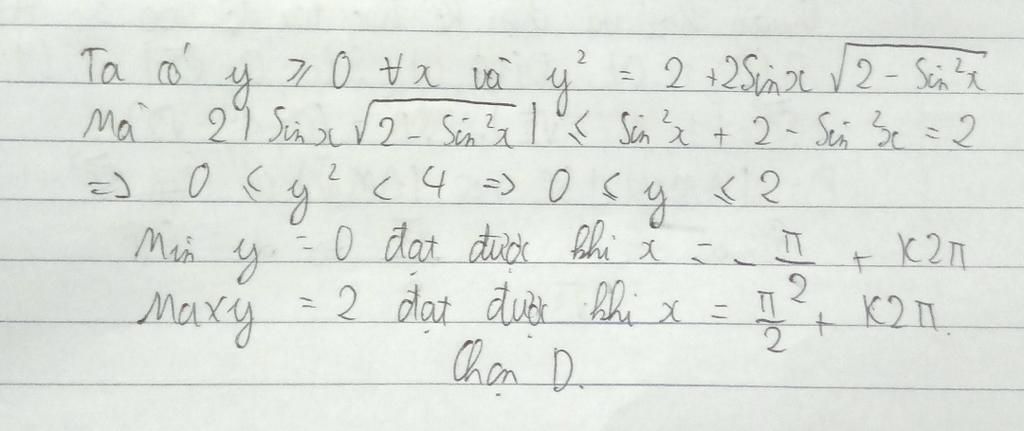 Ta có y ≥ 0 ∀x và y² = 2 + 2Sinx √(2 - Sin²x)
Mà 2|Sinx √(2 - Sin²x)| ≤ Sin²x + 2 - Sin²x = 2
=> 0 ≤ y² ≤ 4 => 0 ≤ y ≤ 2
Min y = 0 đạt được khi x = -π/2 + K2π
Maxy = 2 đạt được khi x = π/2 + K2π.
Chọn D.